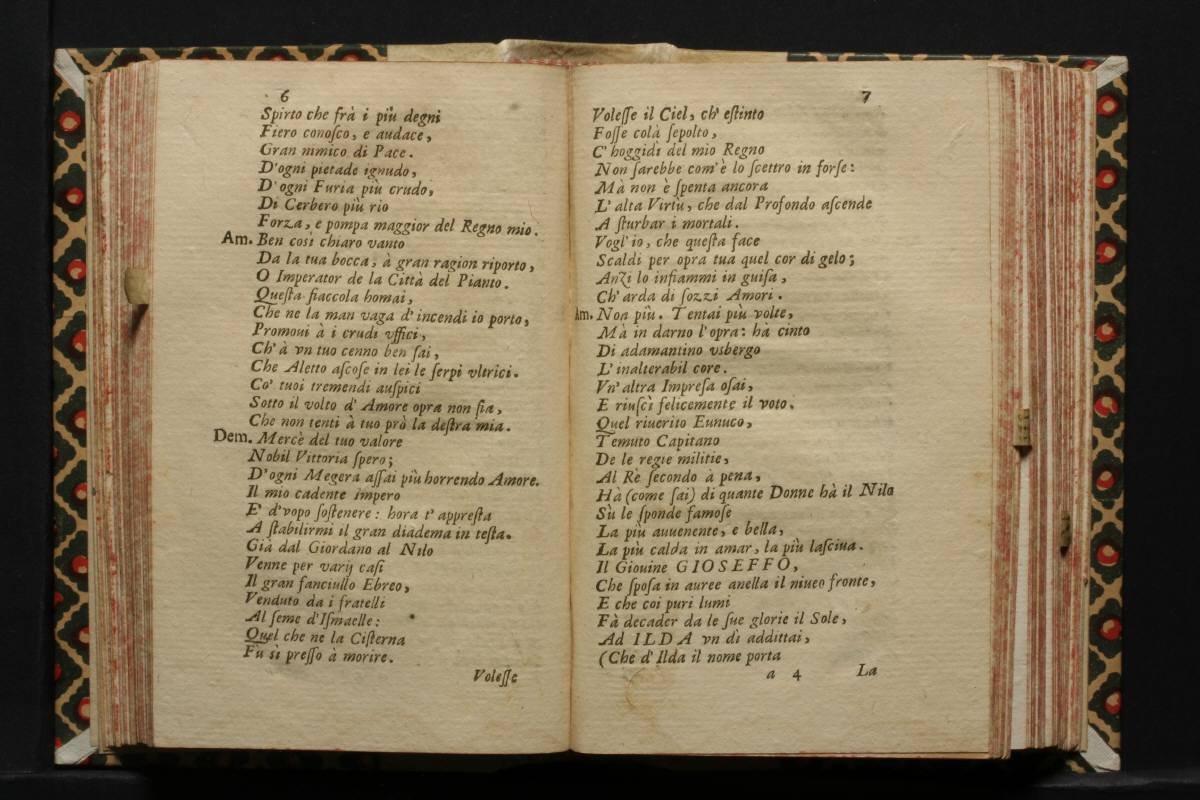 6
Spirto che frà i più degni
Fiero conoſco, e audace,
Gran nimico di Pace.
D'ogni pietade ignudo,
D'ogni Furia più crudo,
Di Cerbero più rio
Forza, e pompa maggior del Regno mio.
Am. Ben così chiaro vanto
Da la tua bocca, à gran ragion riporto,
O Imperator de la Città del Pianto.
Queſta fiaccola homai,
Che ne la man vaga d'incendi io porto,
Promoui à i crudi vffici,
Ch'à vn tuo cenno ben ſai,
Che Aletto aſcoſe in lei le ſerpi vltrici.
Co' tuoi tremendi auſpici
Sotto il volto d'Amore opra non ſia,
Che non tenti à tuo prò la deſtra mia.
Dem. Mercè del tuo valore
Nobil Vittoria ſpero;
D'ogni Megera aſſai più horrendo Amore.
Il mio cadente impero
E' d'vopo ſoſtenere: hora t'appreſta
A ſtabilirmi il gran diadema in teſta.
Già dal Giordano al Nilo
Venne per varij caſi
Il gran fanciullo Ebreo,
Venduto da i fratelli
Al ſeme d'Iſmaelle:
Quel che ne la Ciſterna
Fù sì preſſo à morire.
Voleſſe
7
Voleſſe il Ciel, ch'eſtinto
Foſſe colà ſepolto,
C'hoggidì del mio Regno
Non ſarebbe com'è lo ſcettro in forſe:
Mà non è ſpenta ancora
L'alta Virtù, che dal Profondo aſcende
A ſturbar i mortali.
Vogl'io, che queſta face
Scaldi per opra tua quel cor di gelo;
Anzi lo infiammi in guiſa,
Ch'arda di ſozzi Amori.
Am. Non più. Tentai più volte,
Mà in darno l'opra: hà cinto
Di adamantino vsbergo
L'inalterabil core.
Vn'altra Impreſa oſai,
E riuſcì felicemente il voto.
Quel riuerito Eunuco,
Temuto Capitano
De le regie militie,
Al Rè ſecondo à pena,
Hà (come ſai) di quante Donne hà il Nilo
Sù le ſponde famoſe
La più auuenente, e bella,
La più calda in amar, la più laſciua.
Il Giouine GIOSEFFO,
Che ſpoſa in auree anella il niueo fronte,
E che coi puri lumi
Fà decader da le ſue glorie il Sole,
Ad ILDA vn dì addittai,
(Che d'Ilda il nome porta
a 4 La